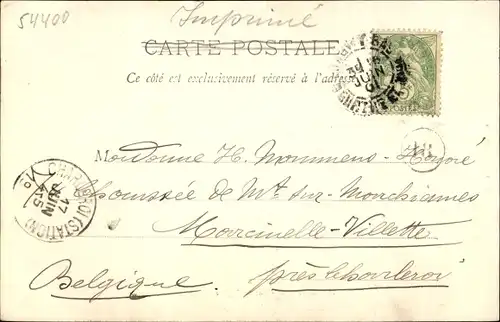 54400
Imprimé
CARTE POSTALE
Ce côté est exclusivement réservé à l'adresse
M
Madame H. Mommens-Honoré
Chaussée de Mt sur-Marchiennes
Marcinelle-Villette
Belgique. près Charleroi
CHARLEROI (STATION)
17
JUIN